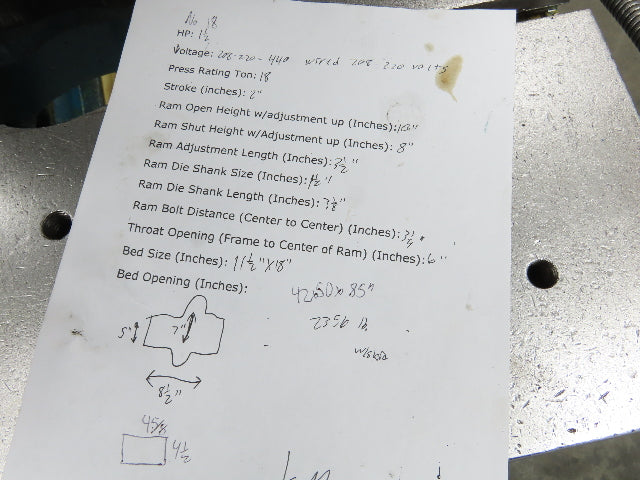 No 18
HP: 1½
Voltage: 208-220-440 wired 208 220 volts
Press Rating Ton: 18
Stroke (inches): 2"
Ram Open Height w/adjustment up (Inches): 10"
Ram Shut Height w/Adjustment up (Inches): 8"
Ram Adjustment Length (Inches): 2½"
Ram Die Shank Size (Inches): 1½"
Ram Die Shank Length (Inches): 3⅛"
Ram Bolt Distance (Center to Center) (Inches): 3¼"
Throat Opening (Frame to Center of Ram) (Inches): 6"
Bed Size (Inches): 11½"X18"
Bed Opening (Inches):
42x50x85"
2356 lb
w/skid
5" 7"
8½"
45/8
4½